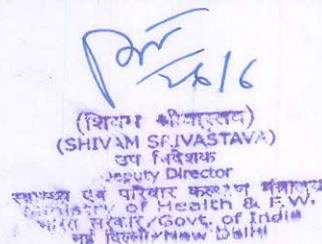 26/6
(शिवम श्रीवास्तव)
(SHIVAM SRIVASTAVA)
उप निदेशक
Deputy Director
स्वास्थ्य एवं परिवार कल्याण मंत्रालय
Ministry of Health & F.W.
भारत सरकार/Govt. of India
नई दिल्ली/New Delhi